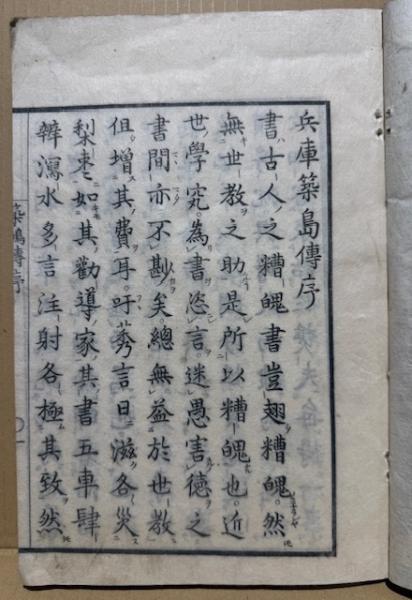 兵庫築島傳序
書古人之糟魄書豈翅糟魄。然
無世教之助是所以糟魄也。近
世學究。為書恣言迷愚害德之
書間亦不尠矣總無益於世教
伹增其費耳。吁莠言日滋各災
梨棗如其勸導家其書五車肆
辨瀉水多言注射各極其致然
築嶋傳序